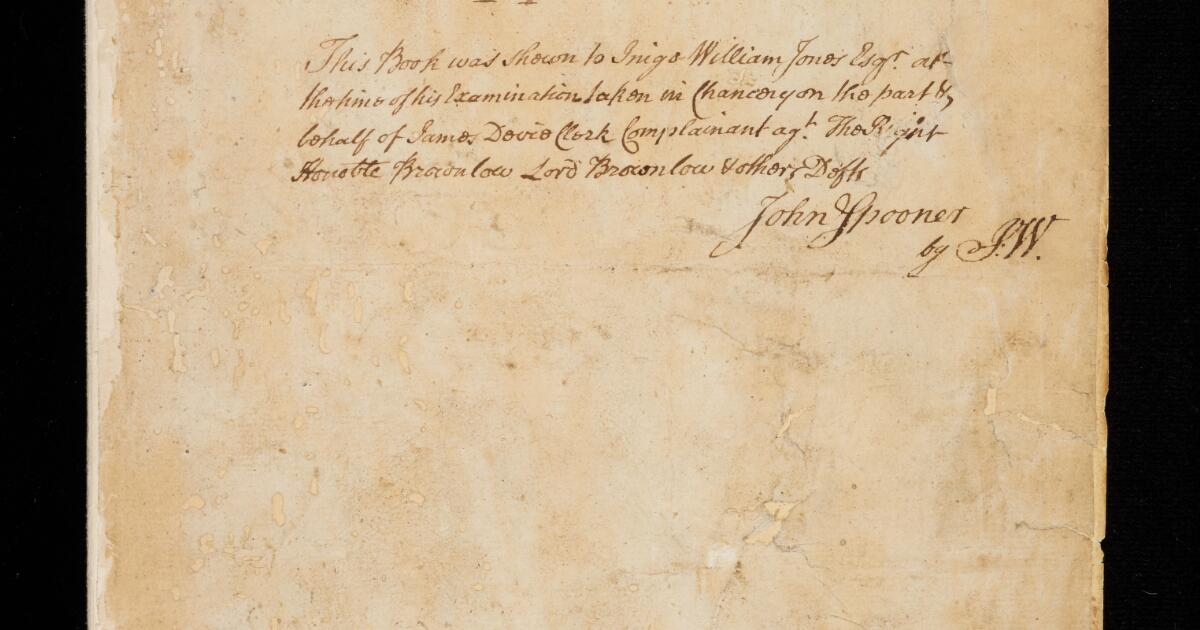 This Book was shewn to Inigo William Jones Esqr. at
the time of his Examination taken in Chancery on the part &
behalf of James Devie Clerk Complainant agt. The Right
Honoble Brownlow Lord Brownlow & others Defts
John Spooner
by J.W.